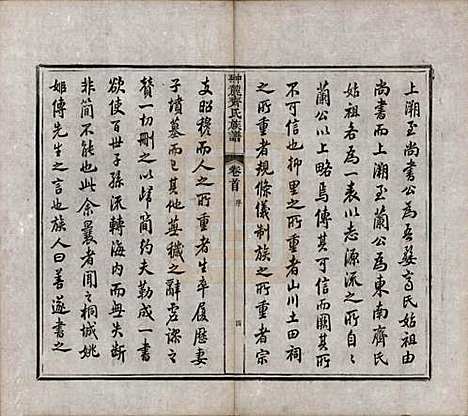 上溯至尚書公為吾婺高氏姑祖由
尚書而上溯至蘭公為東南齊氏
始祖各為一表以志源流之所自
蘭公以上略焉傳其可信而闕其所
不可信也抑里之所重者山川土田祠
之所重者規條儀制族之所重者宗
翀麓齊氏族譜
卷首
序
四
支昭穆而人之所重者生卒履歷妻
子墳墓而已其他蕪穢之辭虛謬之
贊一切刪之以歸簡約夫勒成一書
欲使百世子孫流轉海内而毋失斷
非簡不能也此余曩者聞之桐城姚
姬傳先生之言也族人曰善遂書之